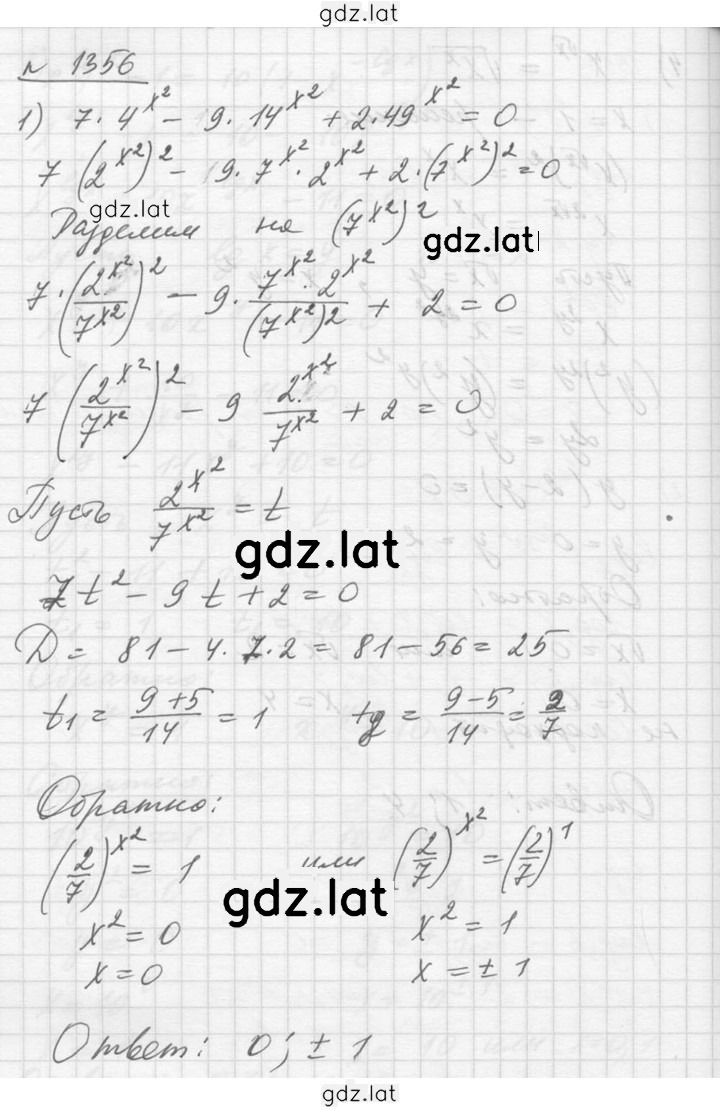 gdz.lat
№ 1356
1) 7·4^x² − 9·14^x² + 2·49^x² = 0
7 (2^x²)² − 19·7^x²·2^x² + 2·(7^x²)² = 0
gdz.lat
Разделим на (7^x²)²
gdz.lat
7·(2^x²/7^x²)² − 9·(7^x²·2^x²)/(7^x²)² + 2 = 0
7 (2^x²/7^x²)² − 9 2^x²/7^x² + 2 = 0
Пусть 2^x²/7^x² = t
gdz.lat
7t² − 9t + 2 = 0
D = 81 − 4·7·2 = 81 − 56 = 25
t₁ = (9+5)/14 = 1 t₂ = (9−5)/14 = 2/7
Обратно:
(2/7)^x² = 1 или (2/7)^x² = (2/7)^1
gdz.lat
x² = 0 x² = 1
x = 0 x = ± 1
Ответ: 0; ± 1
gdz.lat